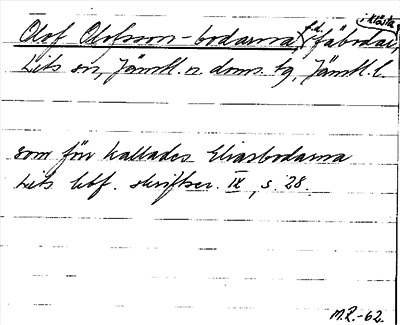 i Klösta
Olof Olofsson-bodarna, f.d. fäbodar,
Lits sn, Jämtl. n. doms. tg, Jämtl. l.
som förr kallades Eliasbodarna
Lits hbf. skriftser. IX, s. 28.
M.R.-62.